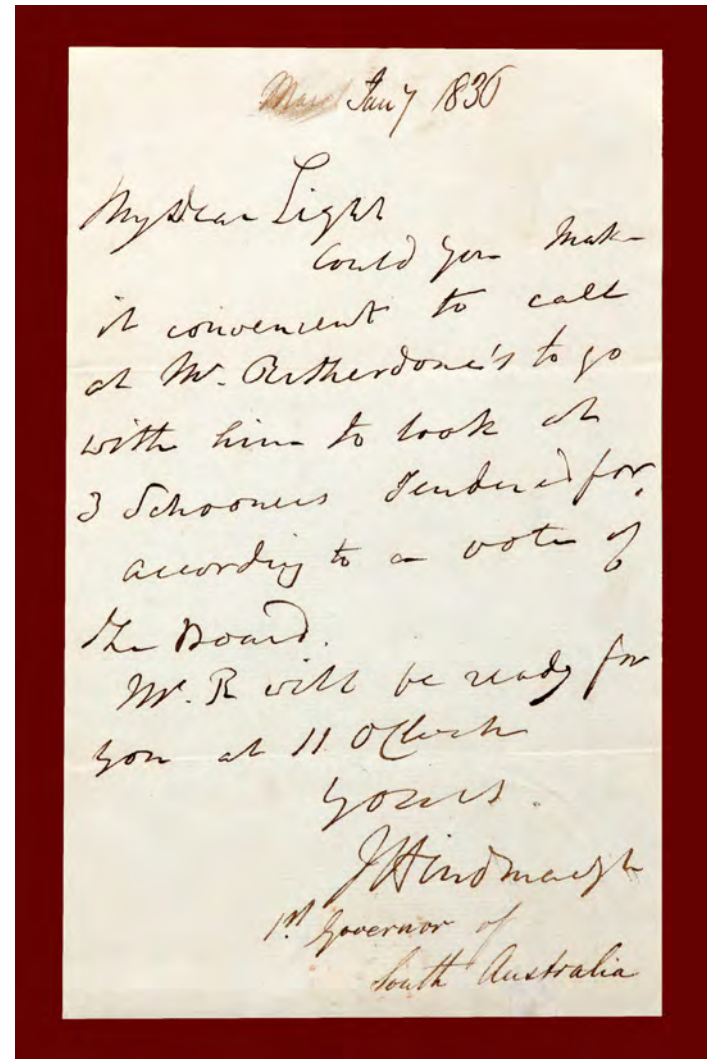 Jany 1836
My Dear Light
Could you make
it convenient to call
at Mr. Rutherdone's to go
with him to look at
3 Schooners tendered for,
according to a vote of
the Board.
Mr. R will be ready for
you at 11 O'Clock
Yours.
J Hindmarsh
1st Governor of
South Australia